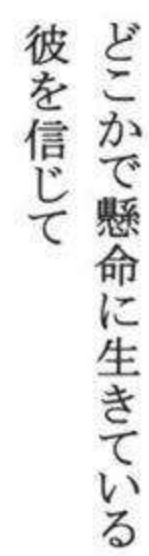 どこかで懸命に生きている
彼を信じて